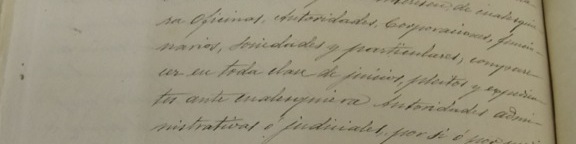 de cualesquie-
ra Oficinas, Autoridades, Corporaciones, funcio-
narios, Sociedades y particulares, compare-
cer en toda clase de juicios, pleitos y expedien-
tes ante cualesquiera Autoridades admi-
nistrativas ó judiciales, por sí ó por